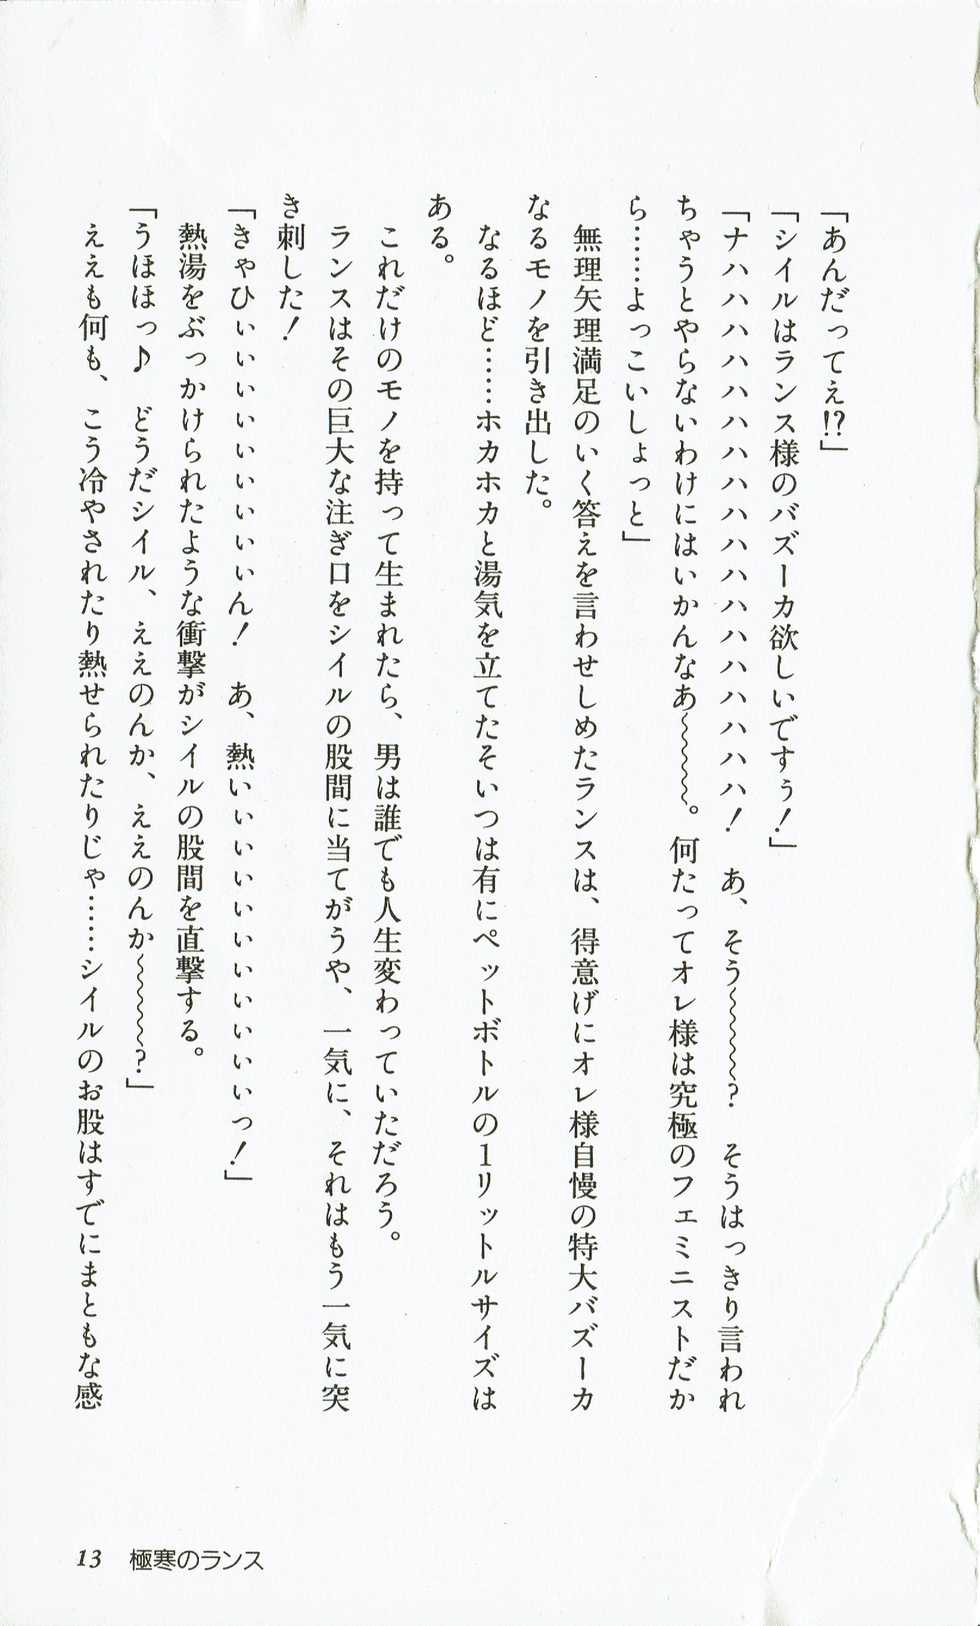 「あんだってぇ!?」
「シイルはランス様のバズーカ欲しいですぅ！」
「ナハハハハハハハハハハハハハハハハハハ！　あ、そう～～～～？　そうはっきり言われ
ちゃうとやらないわけにはいかんなあ～～～～。何たってオレ様は究極のフェミニストだか
ら……よっこいしょっと」
　無理矢理満足のいく答えを言わせしめたランスは、得意げにオレ様自慢の特大バズーカ
なるモノを引き出した。
　なるほど……ホカホカと湯気を立てたそいつは有にペットボトルの１リットルサイズは
ある。
　これだけのモノを持って生まれたら、男は誰でも人生変わっていただろう。
　ランスはその巨大な注ぎ口をシイルの股間に当てがうや、一気に、それはもう一気に突
き刺した！
「きゃひぃぃぃぃぃぃぃぃぃん！　あ、熱いぃぃぃぃぃぃぃぃぃぃっ！」
　熱湯をぶっかけられたような衝撃がシイルの股間を直撃する。
「うほほっ♪　どうだシイル、ええのんか、ええのんか～～～～？」
　ええも何も、こう冷やされたり熱せられたりじゃ……シイルのお股はすでにまともな感
13　極寒のランス